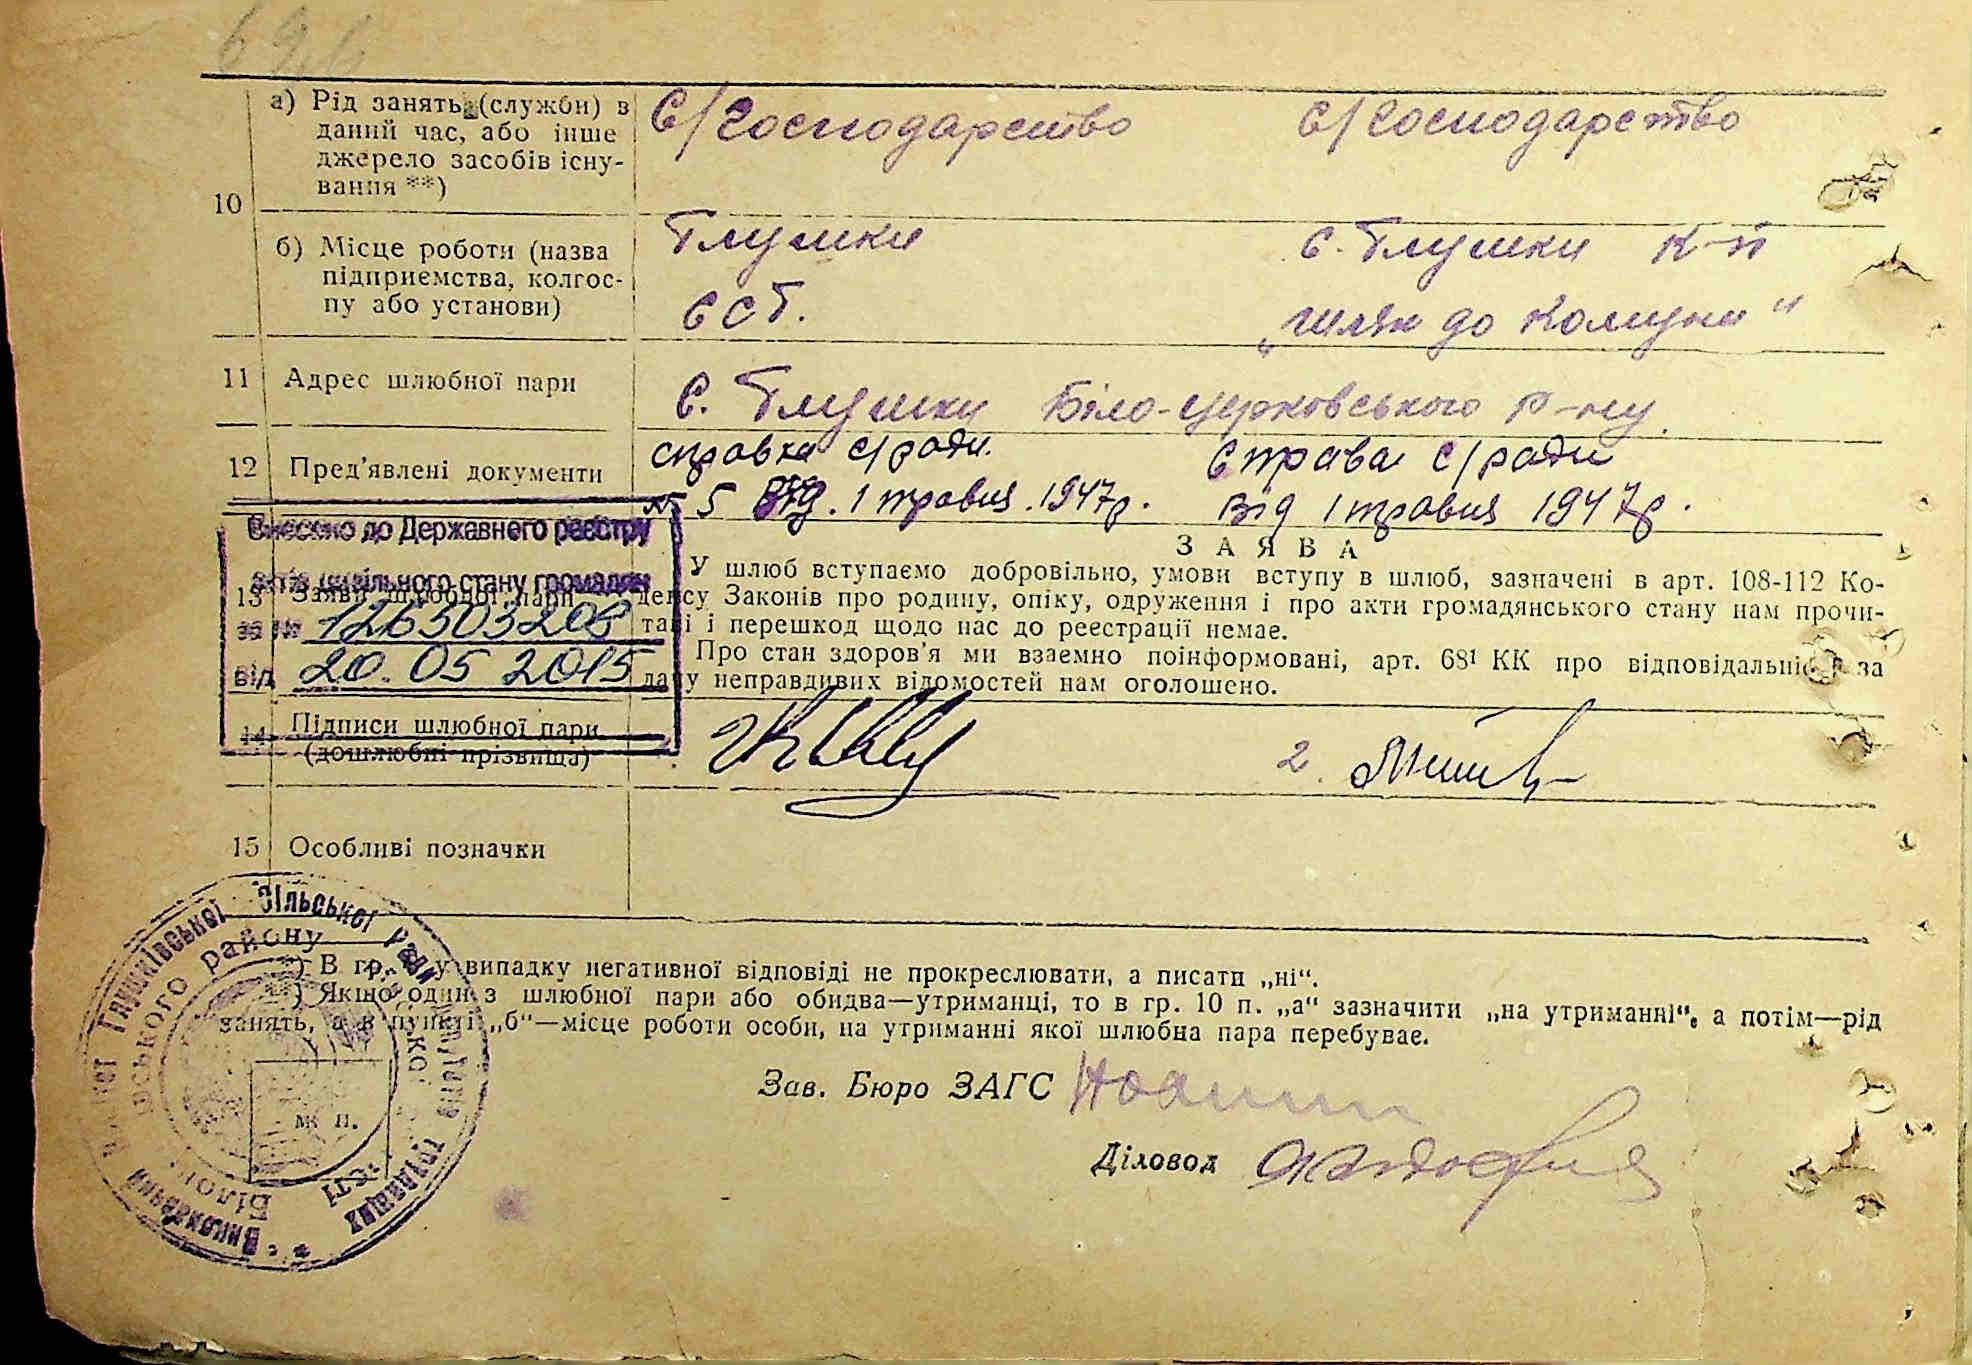 10
а) Рід занять (служби) в
даний час, або інше
джерело засобів існу-
вання **)
С/Господарство
С/Господарство
б) Місце роботи (назва
підприємства, колгос-
пу або установи)
Глушки
ССТ.
с. Глушки к-п
„Шлях до Комуни“
11 Адрес шлюбної пари
с. Глушки Біло-церковського р-ну
12 Пред’явлені документи
справка с/ради.
№ 5 від. 1 травня. 1947р.
Справа с/ради
від 1 травня 1947р.
Внесено до Державного реєстру
актів цивільного стану громадян
за № 126503208
від 20. 05 2015
13 Заяви шлюбної пари
ЗАЯВА
У шлюб вступаємо добровільно, умови вступу в шлюб, зазначені в арт. 108-112 Ко-
дексу Законів про родину, опіку, одруження і про акти громадянського стану нам прочи-
тані і перешкод щодо нас до реєстрації немає.
Про стан здоров’я ми взаємно поінформовані, арт. 68¹ КК про відповідальність за
дачу неправдивих відомостей нам оголошено.
14 Підписи шлюбної пари
(дошлюбні прізвища)
2.
15 Особливі позначки
*) В гр. у випадку негативної відповіді не прокреслювати, а писати „ні“.
**) Якщо один з шлюбної пари або обидва—утриманці, то в гр. 10 п. „а“ зазначити „на утриманні“, а потім—рід
занять, а в пункті „б“—місце роботи особи, на утриманні якої шлюбна пара перебуває.
Зав. Бюро ЗАГС
Діловод
м. п.
Глушківської Сільської Ради
Депутатів Трудящих
Виконавчий
району